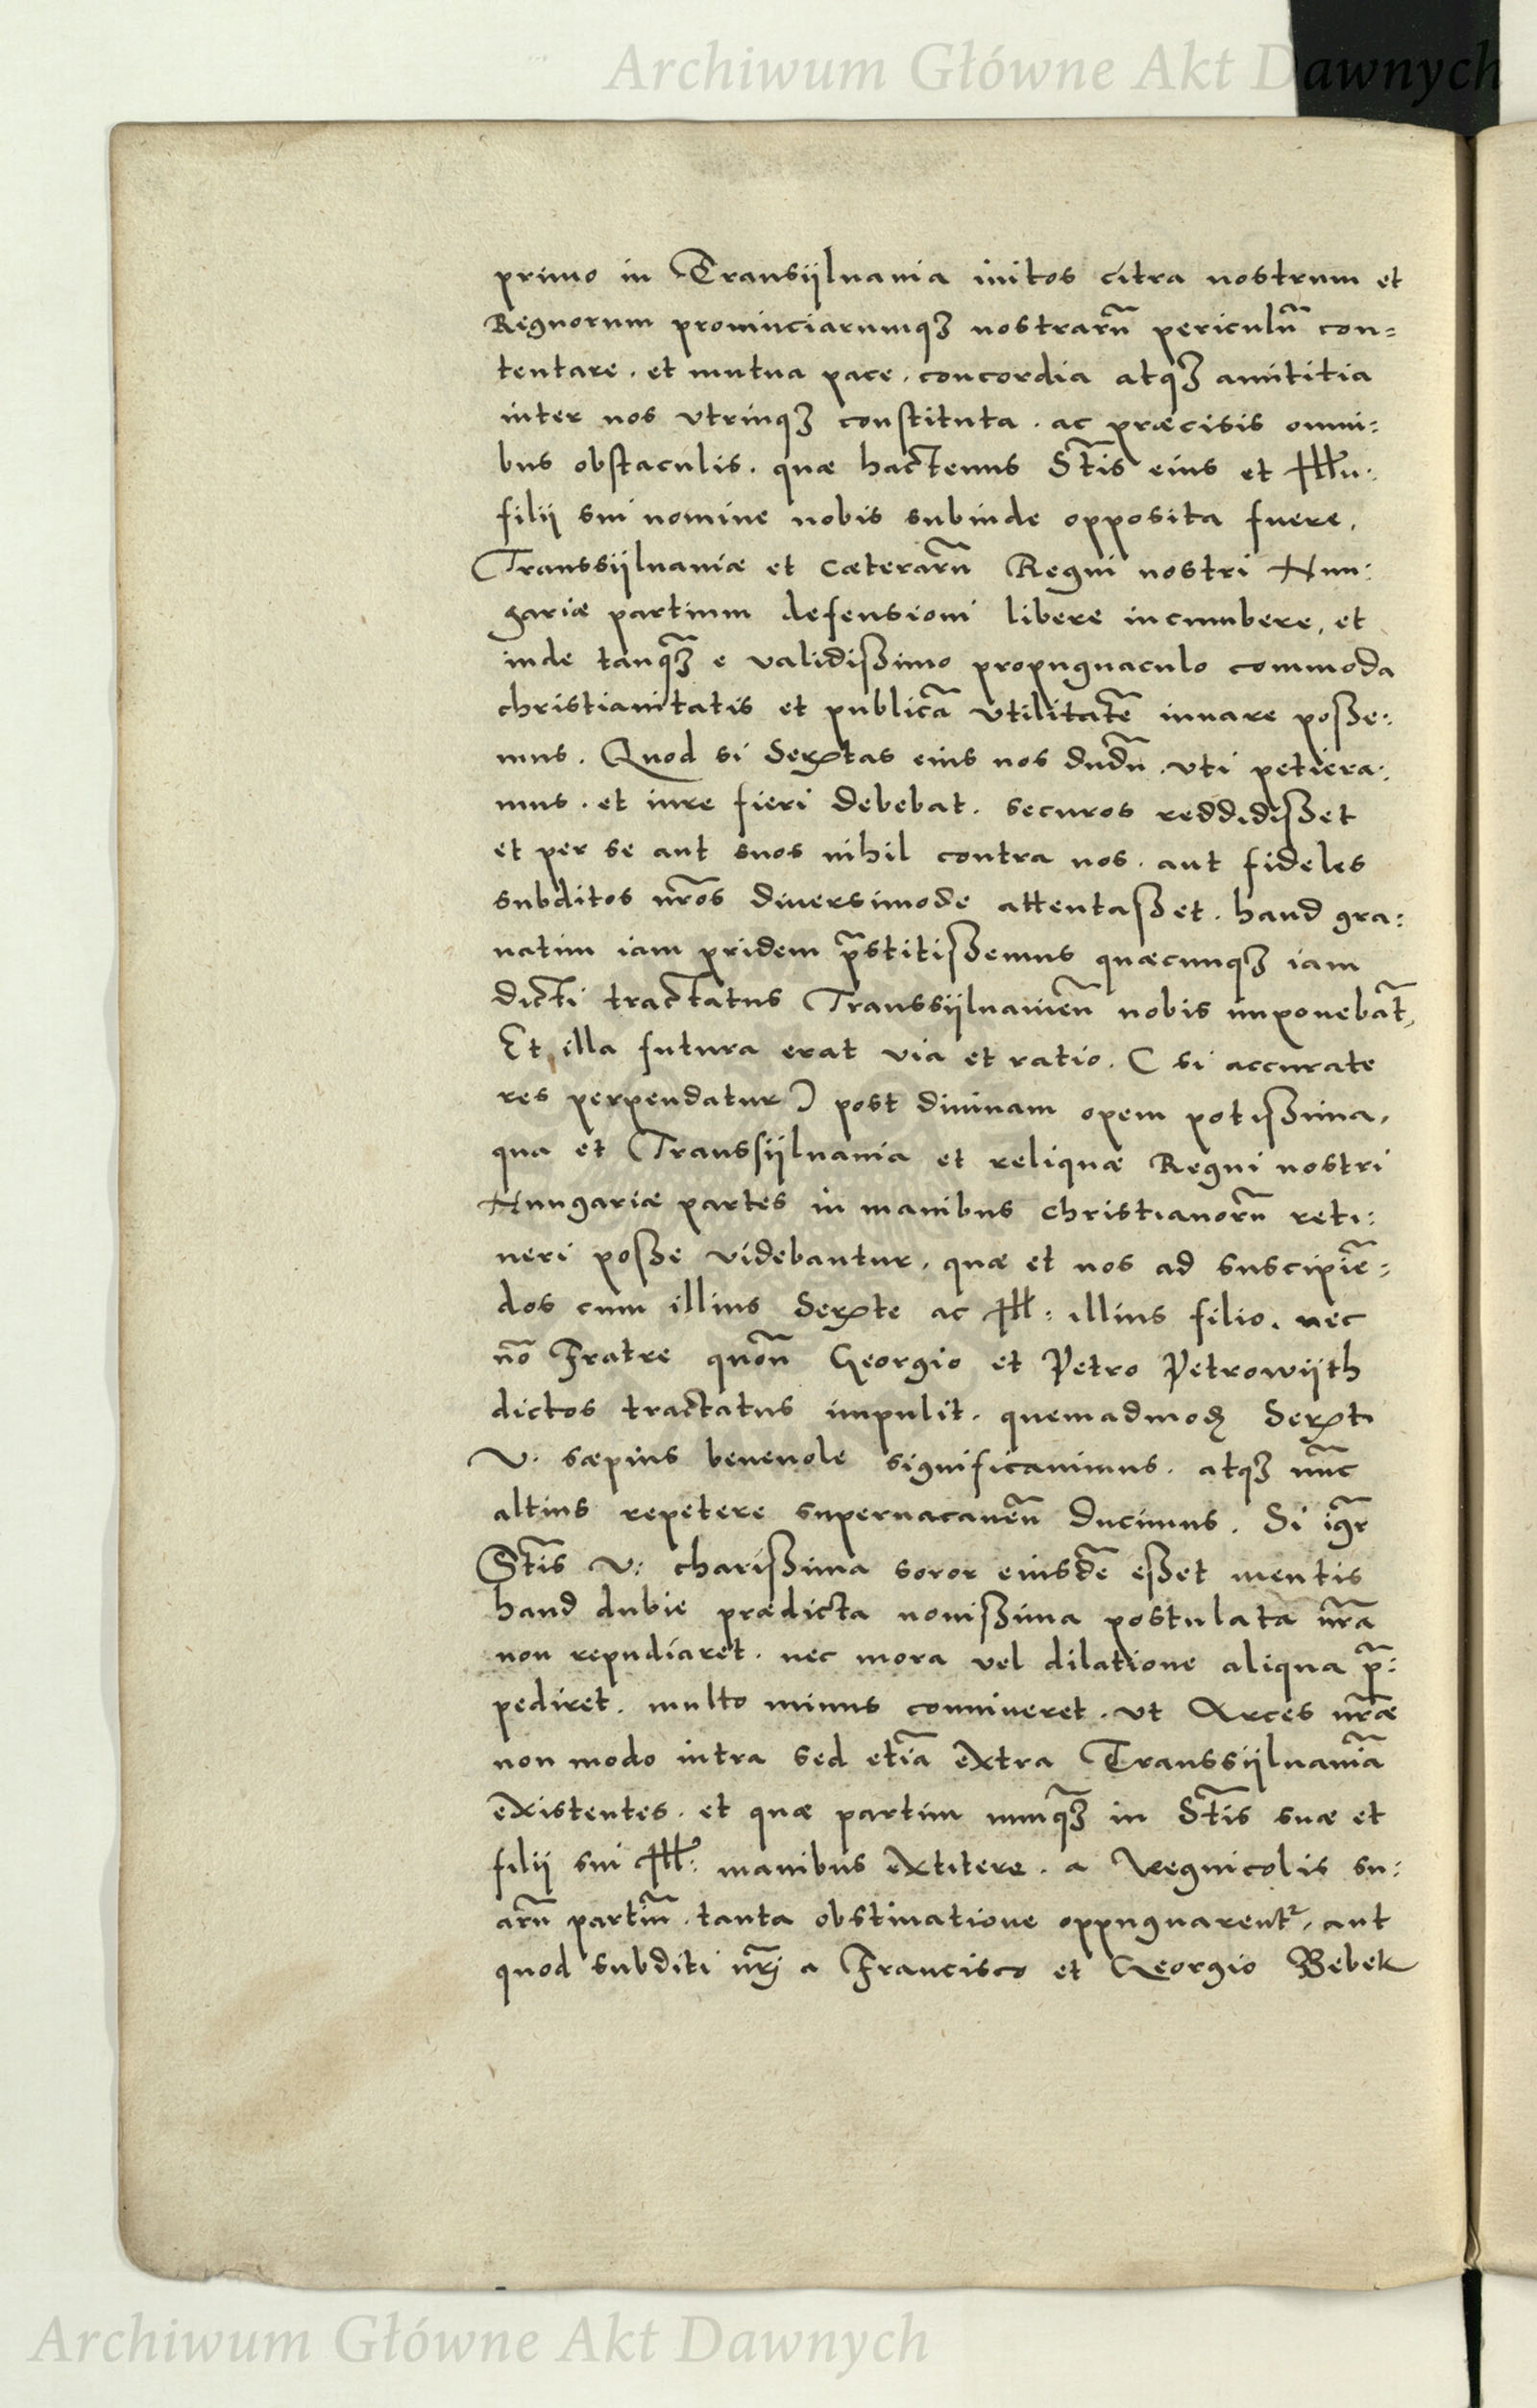 Archiwum Główne Akt Dawnych
primo in Transÿluania initos citra nostrum et
Regnorum prouinciarumqꝫ nostrarũ periculũ con=
tentare. et mutua pace. concordia atqꝫ amititia
inter nos vtrinqꝫ constituta. ac præcisis omni=
bus obstaculis. quæ hactenus St̃is eius et Illu.
filij sui nomine nobis subinde opposita fuere.
Transsÿluaniæ et cæterarũ Regni nostri Hun=
gariæ partium defensioni libere incumbere, et
inde tanqꝫ̃ e validißimo propugnaculo commoda
christianitatis et publicã vtilitatẽ iuuare poße=
mus. Quod si Serertas eius nos dudũ. vti petiera=
mus. et iure fieri debebat. securos reddidißet
et per se aut suos nihil contra nos. aut fideles
subditos nr̃os diuersimode attentaßet. haud gra=
uatim iam pridem p̃stitißemus quæcunqꝫ iam
dicti tractatus Transsÿluanieñ nobis imponebãt,
Et illa futura erat via et ratio. ( si accurate
res perpendatur ) post diuinam opem potißima.
qua et Transsÿluania et reliquæ Regni nostri
Hungariæ partes in manibus christianorũ reti=
neri poße videbantur. quæ et nos ad suscipiẽ=
dos cum illius Serte ac Ill: illius filio. nec
nõ Fratre quoñ Georgio et Petro Petrowÿth
dictos tractatus impulit. quemadmoꝫ Serti
V. sæpius beneuole significauimus. atqꝫ nũc
altius repetere superuacaneũ ducimus. Si igr̃
St̃is V: charißima soror eiusdẽ eßet mentis
haud dubie prædicta nouißima postulata nr̃a
non repudiaret. nec mora vel dilatione aliqua p̃=
pediret. multo minus conniueret. vt Arces nr̃æ
non modo intra sed etiã extra Transsÿluaniã
existentes. et quæ partim nunqꝫ̃ in St̃is suæ et
filij sui Ill: manibus extitere. a Regnicolis su=
arũ partiũ. tanta obstinatione oppugnarentr̃, aut
quod subditi nr̃j a Francisco et Georgio Bebek
Archiwum Główne Akt Dawnych